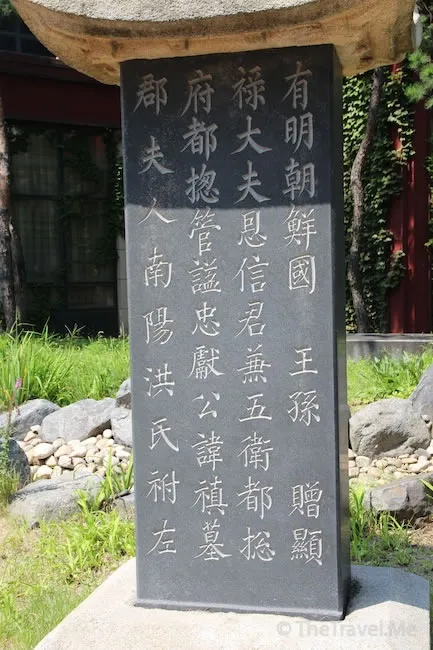 有明朝鮮國 王孫 贈顯
禄大夫恩信君兼五衛都捴
府都捴管謚忠獻公諱禛墓
郡夫人南陽洪氏祔左
© TheTravel.Me